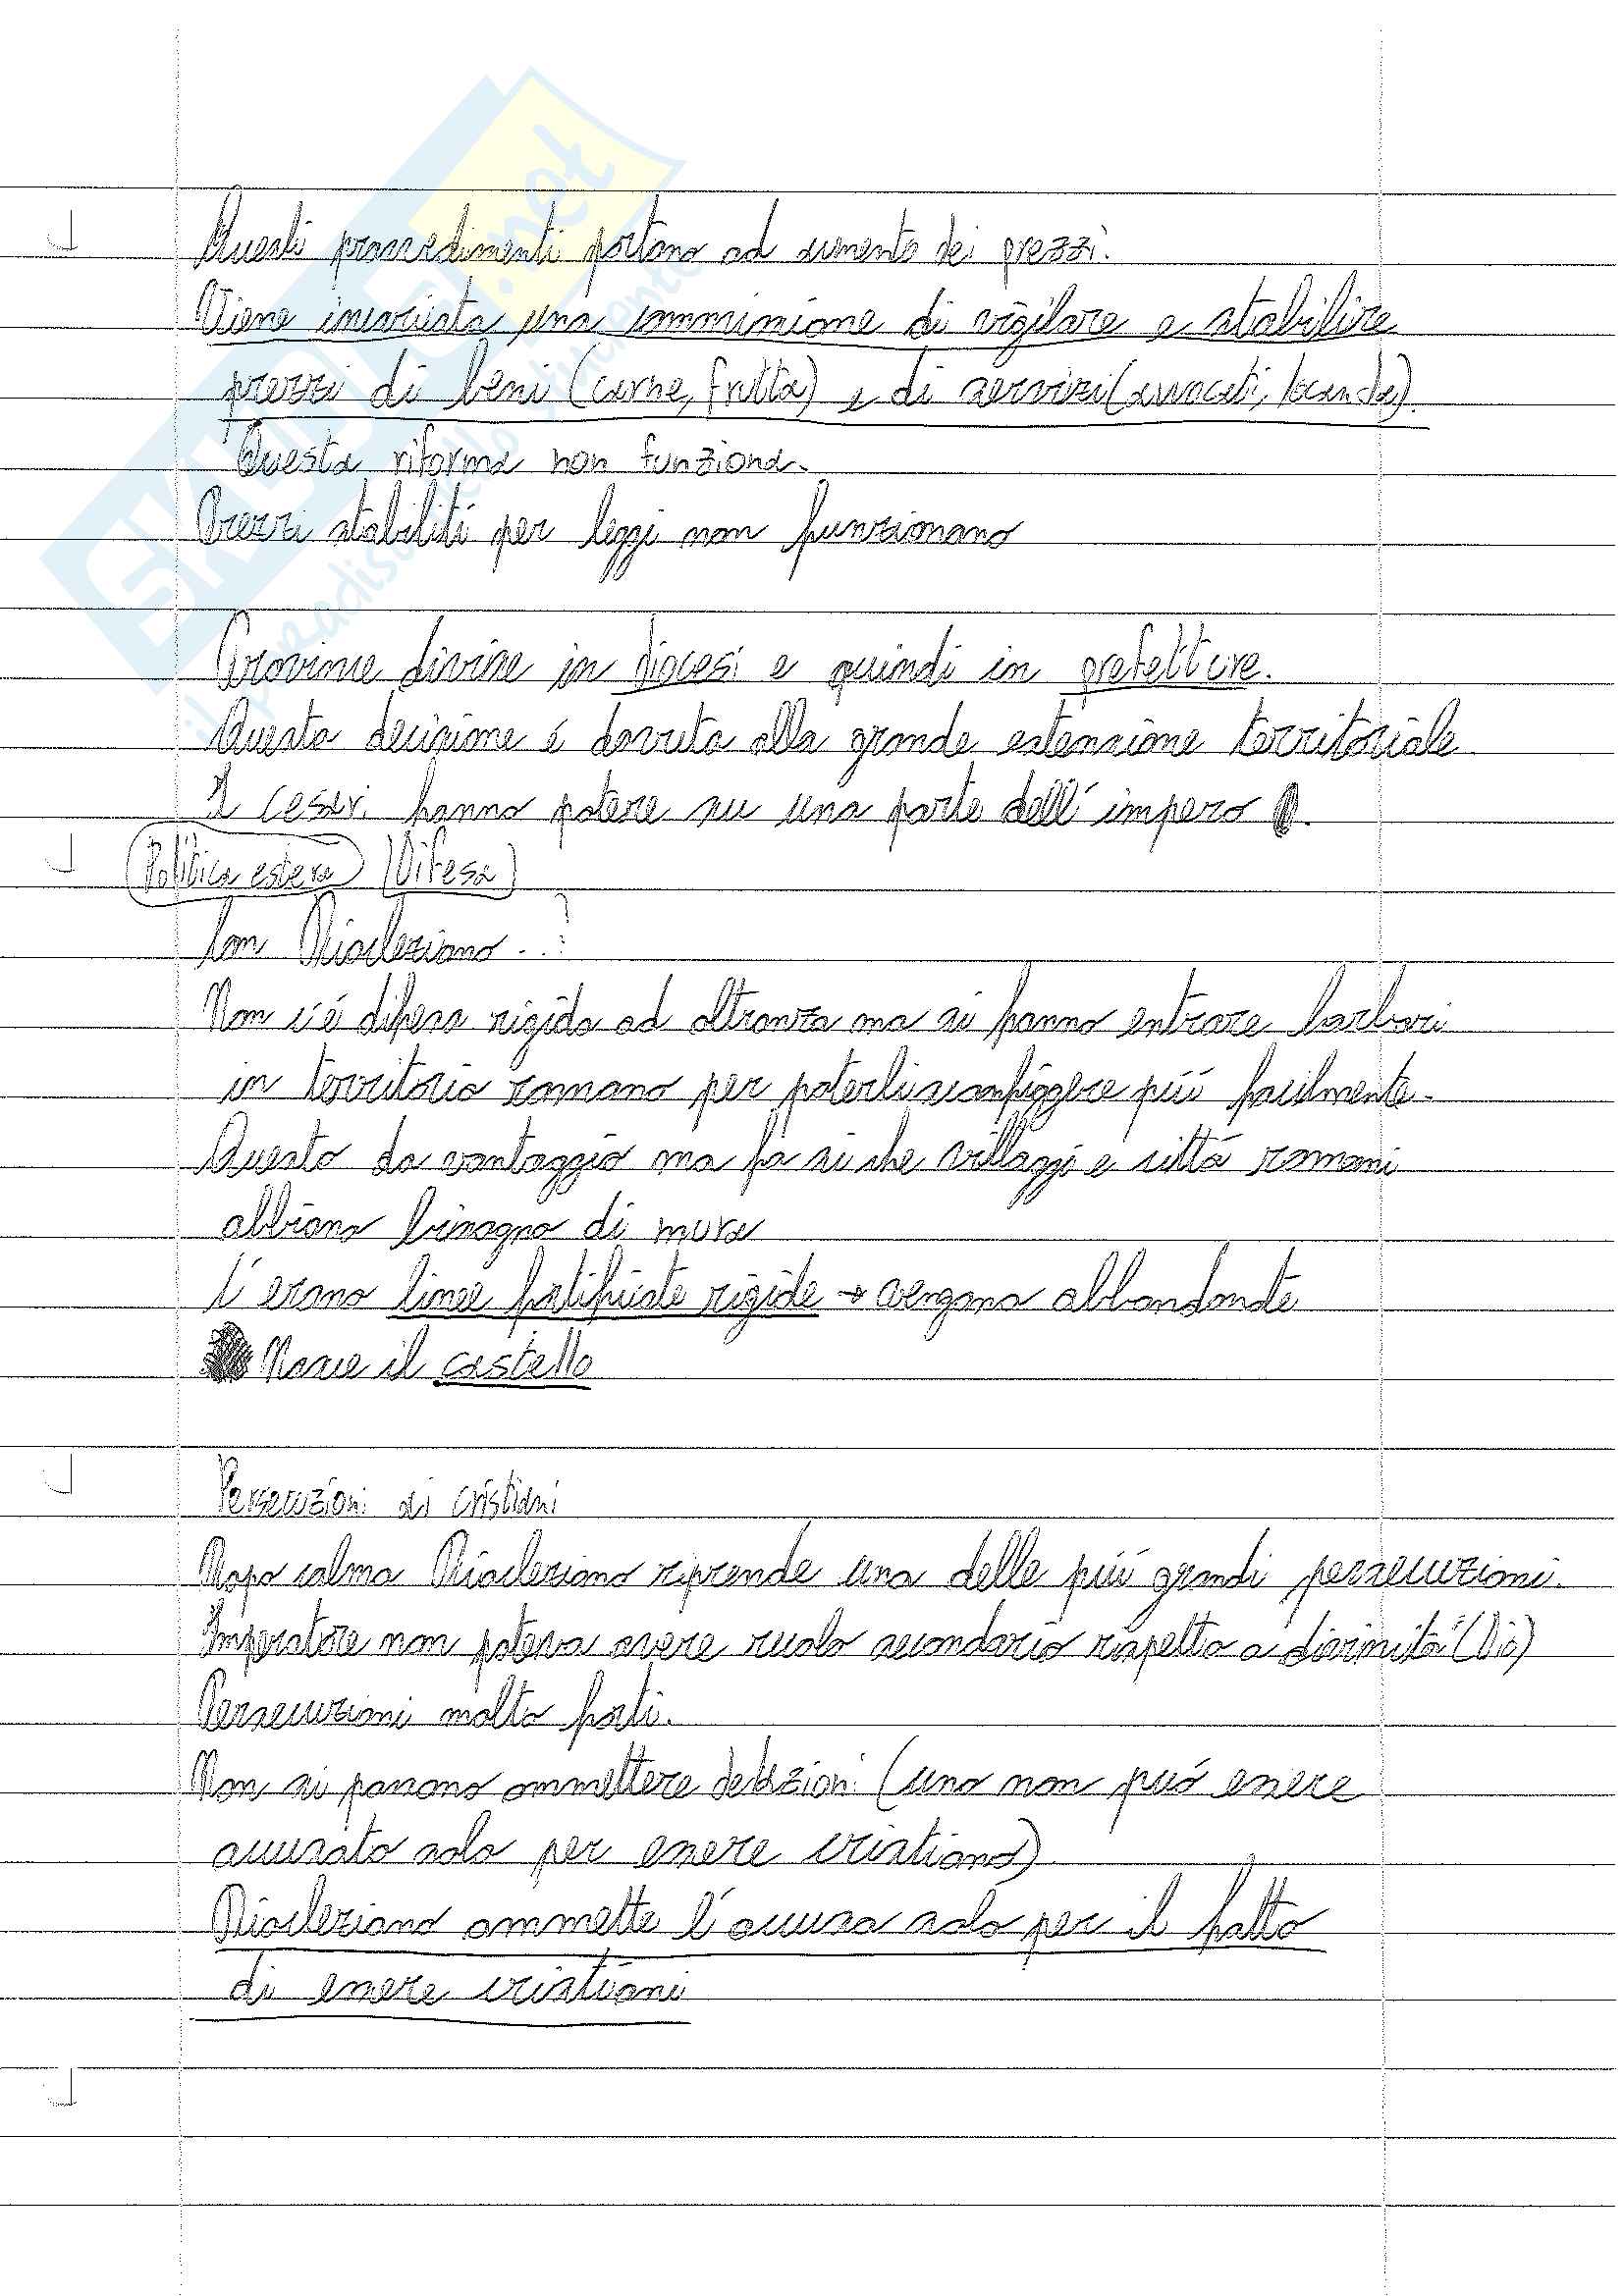 Questi provvedimenti portano ad aumento dei prezzi.
Viene incaricata una commissione di vigilare e stabilire
prezzi di beni (carne, frutta) e di servizi (avvocati, locanda).
Questa riforma non funziona.
Prezzi stabiliti per leggi non funzionano
Provincie divise in diocesi e quindi in prefetture.
Questa decisione é dovuta alla grande estensione territoriale
I cesari hanno potere su una parte dell'impero
Politica estera (Difesa)
Con Diocleziano...:
Non c'é difesa rigida ad oltranza ma si fanno entrare barbari
in territorio romano per poterli sconfiggere piú facilmente.
Questo da vantaggio ma fa si che villaggi e cittá romani
abbiano bisogno di mura
C'erano linee fortificate rigide → vengono abbandonate
Nasce il castello
Persecuzioni ai cristiani
Dopo calma Diocleziano riprende una delle piú grandi persecuzioni.
Imperatore non poteva avere ruolo secondario rispetto a divinitá (Dio)
Persecuzioni molto forti.
Non si possono ammettere delazioni (uno non puó essere
accusato solo per essere cristiano)
Diocleziano ammette l'accusa solo per il fatto
di essere cristiani
SKUOLA.net
il paradiso dello studente